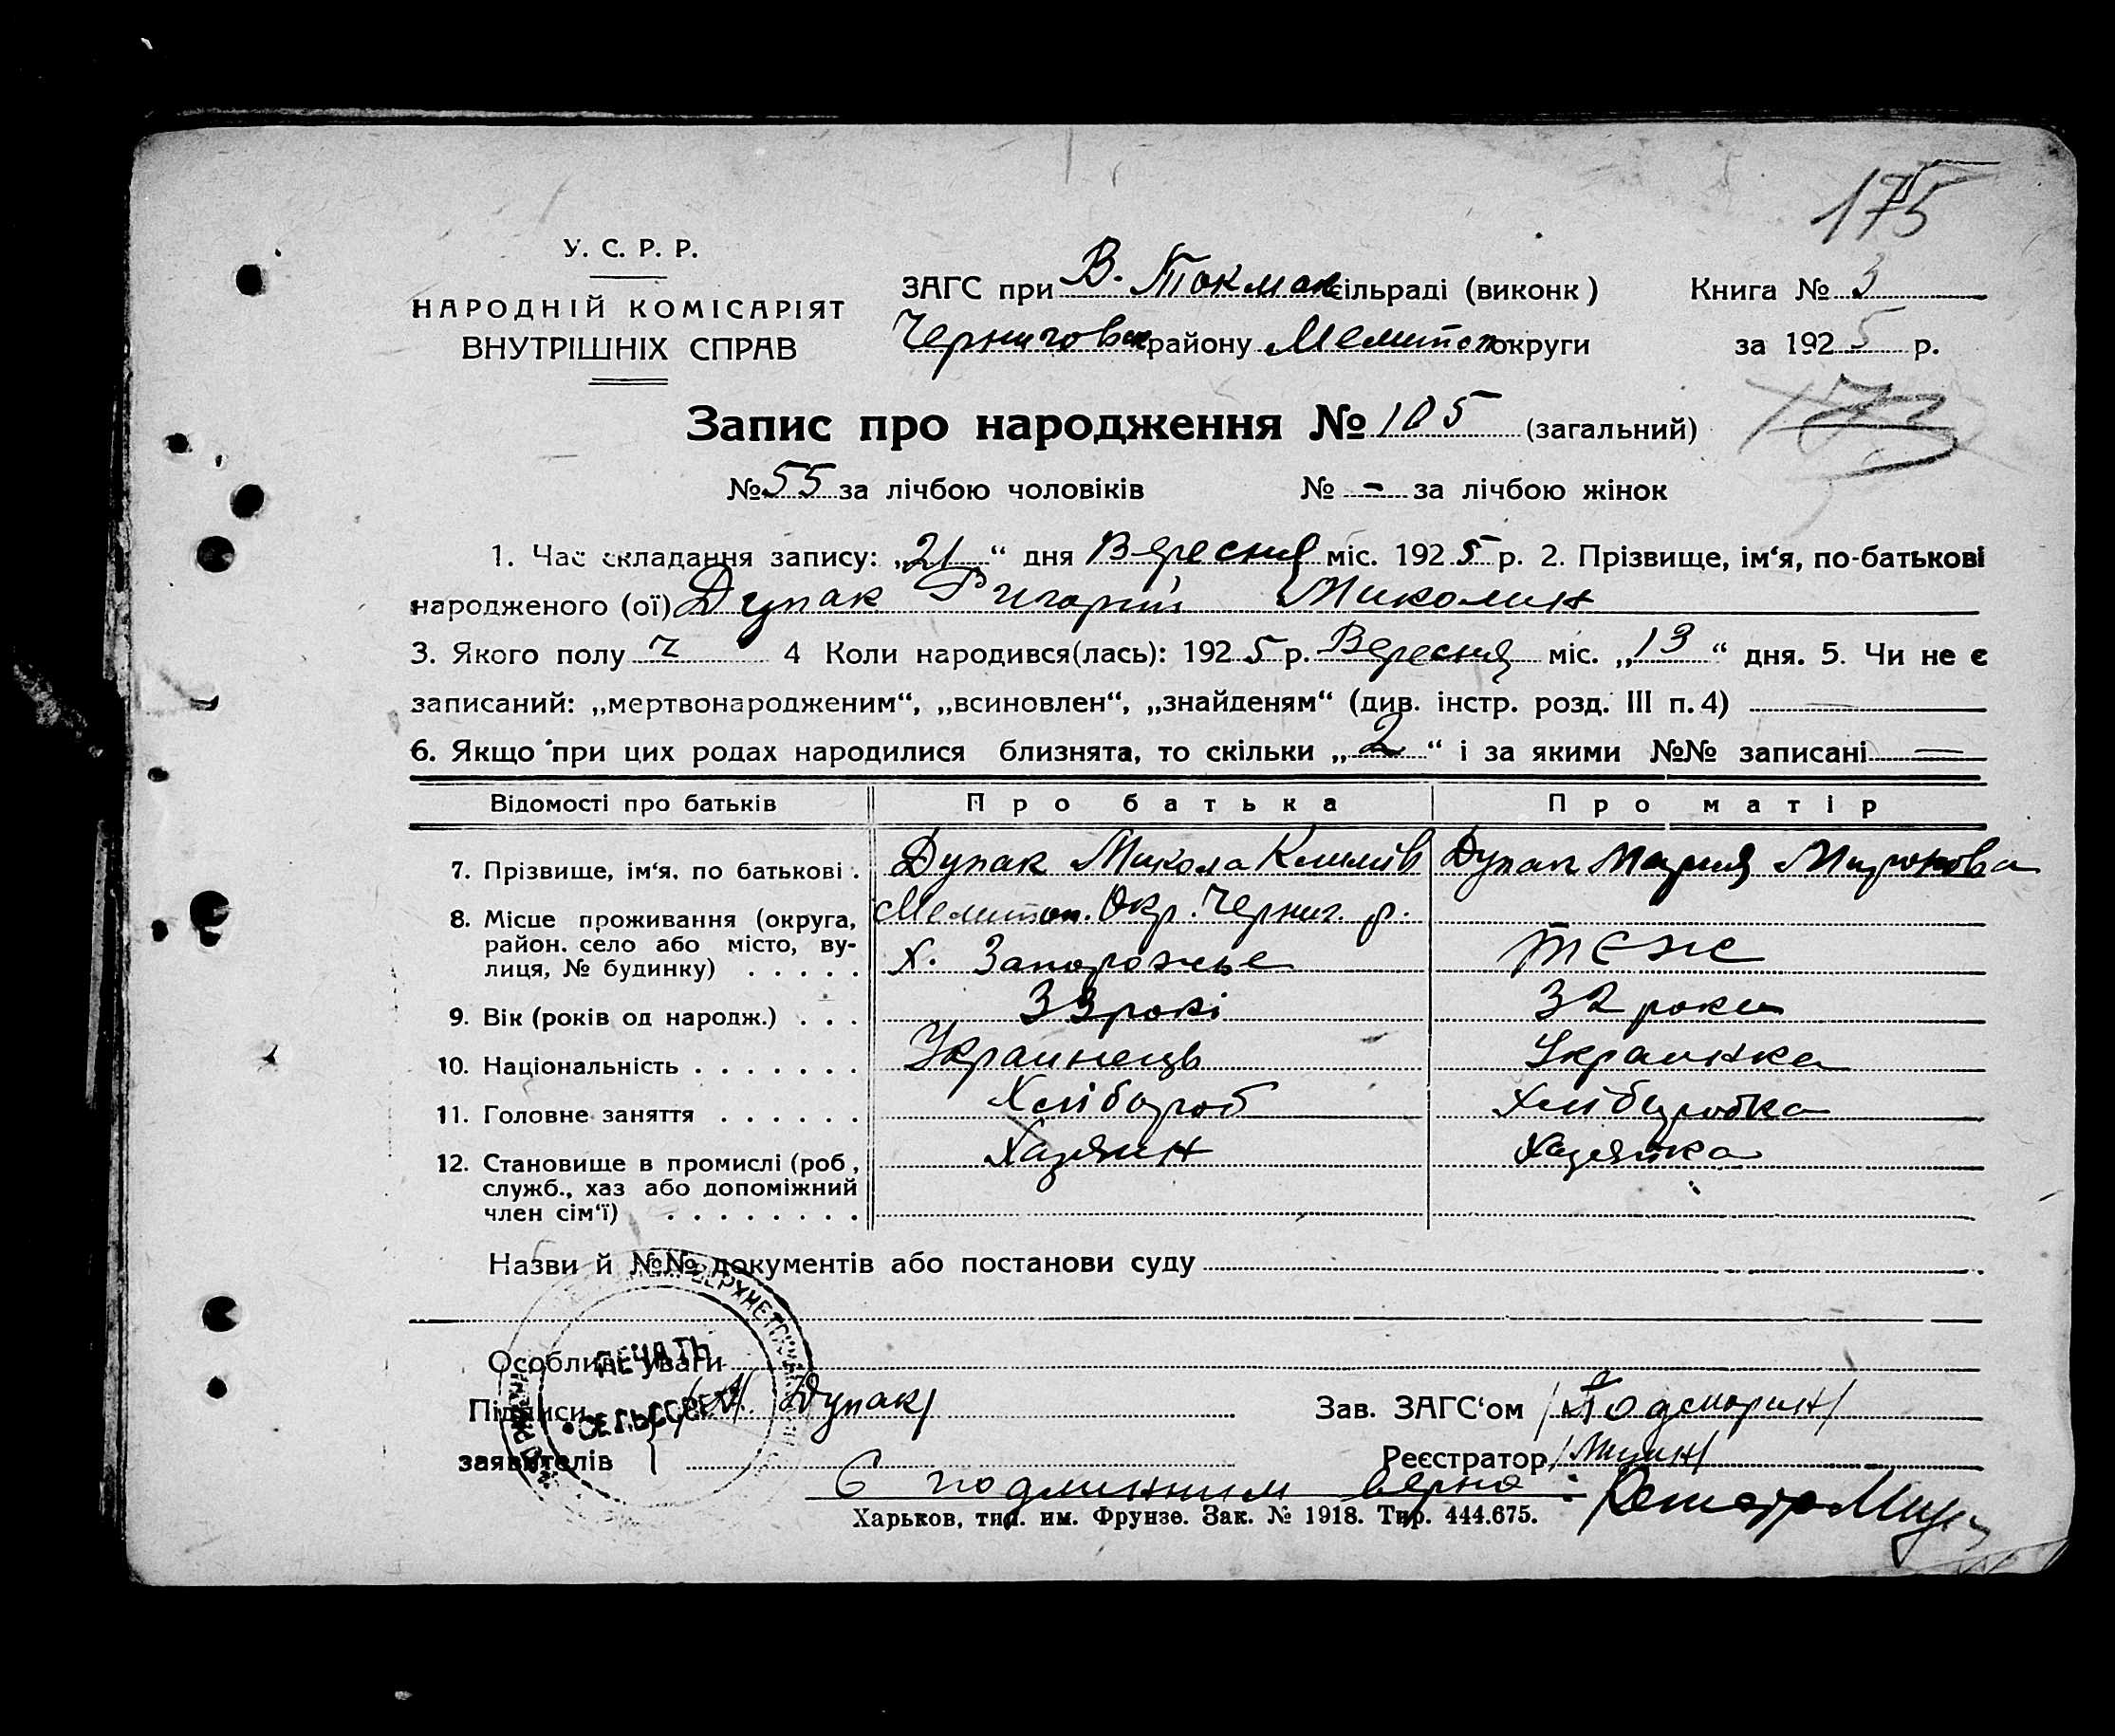 175
У. С. Р. Р.
НАРОДНІЙ КОМІСАРІЯТ
ВНУТРІШНІХ СПРАВ
ЗАГС при В. Токмак сільраді (виконк) Книга № 3
Черниговск району Мелитоп округи за 1925 р.
Запис про народження № 105 (загальний)
173
№ 55 за лічбою чоловіків № - за лічбою жінок
1. Час складання запису: „21“ дня Вересня міс. 1925 р. 2. Прізвище, ім‘я, по-батькові
народженого (ої) Дупак Григорій Миколин
3. Якого полу ч 4 Коли народився(лась): 1925 р. Вересня міс. „13“ дня. 5. Чи не є
записаний: „мертвонародженим“, „всиновлен“, „знайденям“ (див. інстр. розд. III п. 4)
6. Якщо при цих родах народилися близнята, то скільки „2“ і за якими №№ записані
Відомості про батьків Про батька Про матір
7. Прізвище, ім‘я. по батькові . Дупак Микола Дупак Мария Миронова
8. Місце проживання (округа, Мелитоп. Окр. Черниг. р.
район. село або місто, ву-
лиця, № будинку) . . . . . Х. Запорожье теже
9. Вік (років од народж.) . . . 33 рокі 32 роки
10. Національність . . . . . . . Украинець Украинка
11. Головне заняття . . . . . . Хлібороб Хліборобка
12. Становище в промислі (роб, Хазяин Хазяйка
служб., хаз або допоміжний
член сім‘ї) . . . . . . . .
Назви й №№ документів або постанови суду
Особливі уваги
ПЕЧАТЬ
СЕЛЬСОВЕТ
Підписи /Дупак/ Зав. ЗАГС‘ом
заявителів Реєстратор
С подлинным верно:
Харьков, тип. им. Фрунзе. Зак. № 1918. Тир. 444.675.